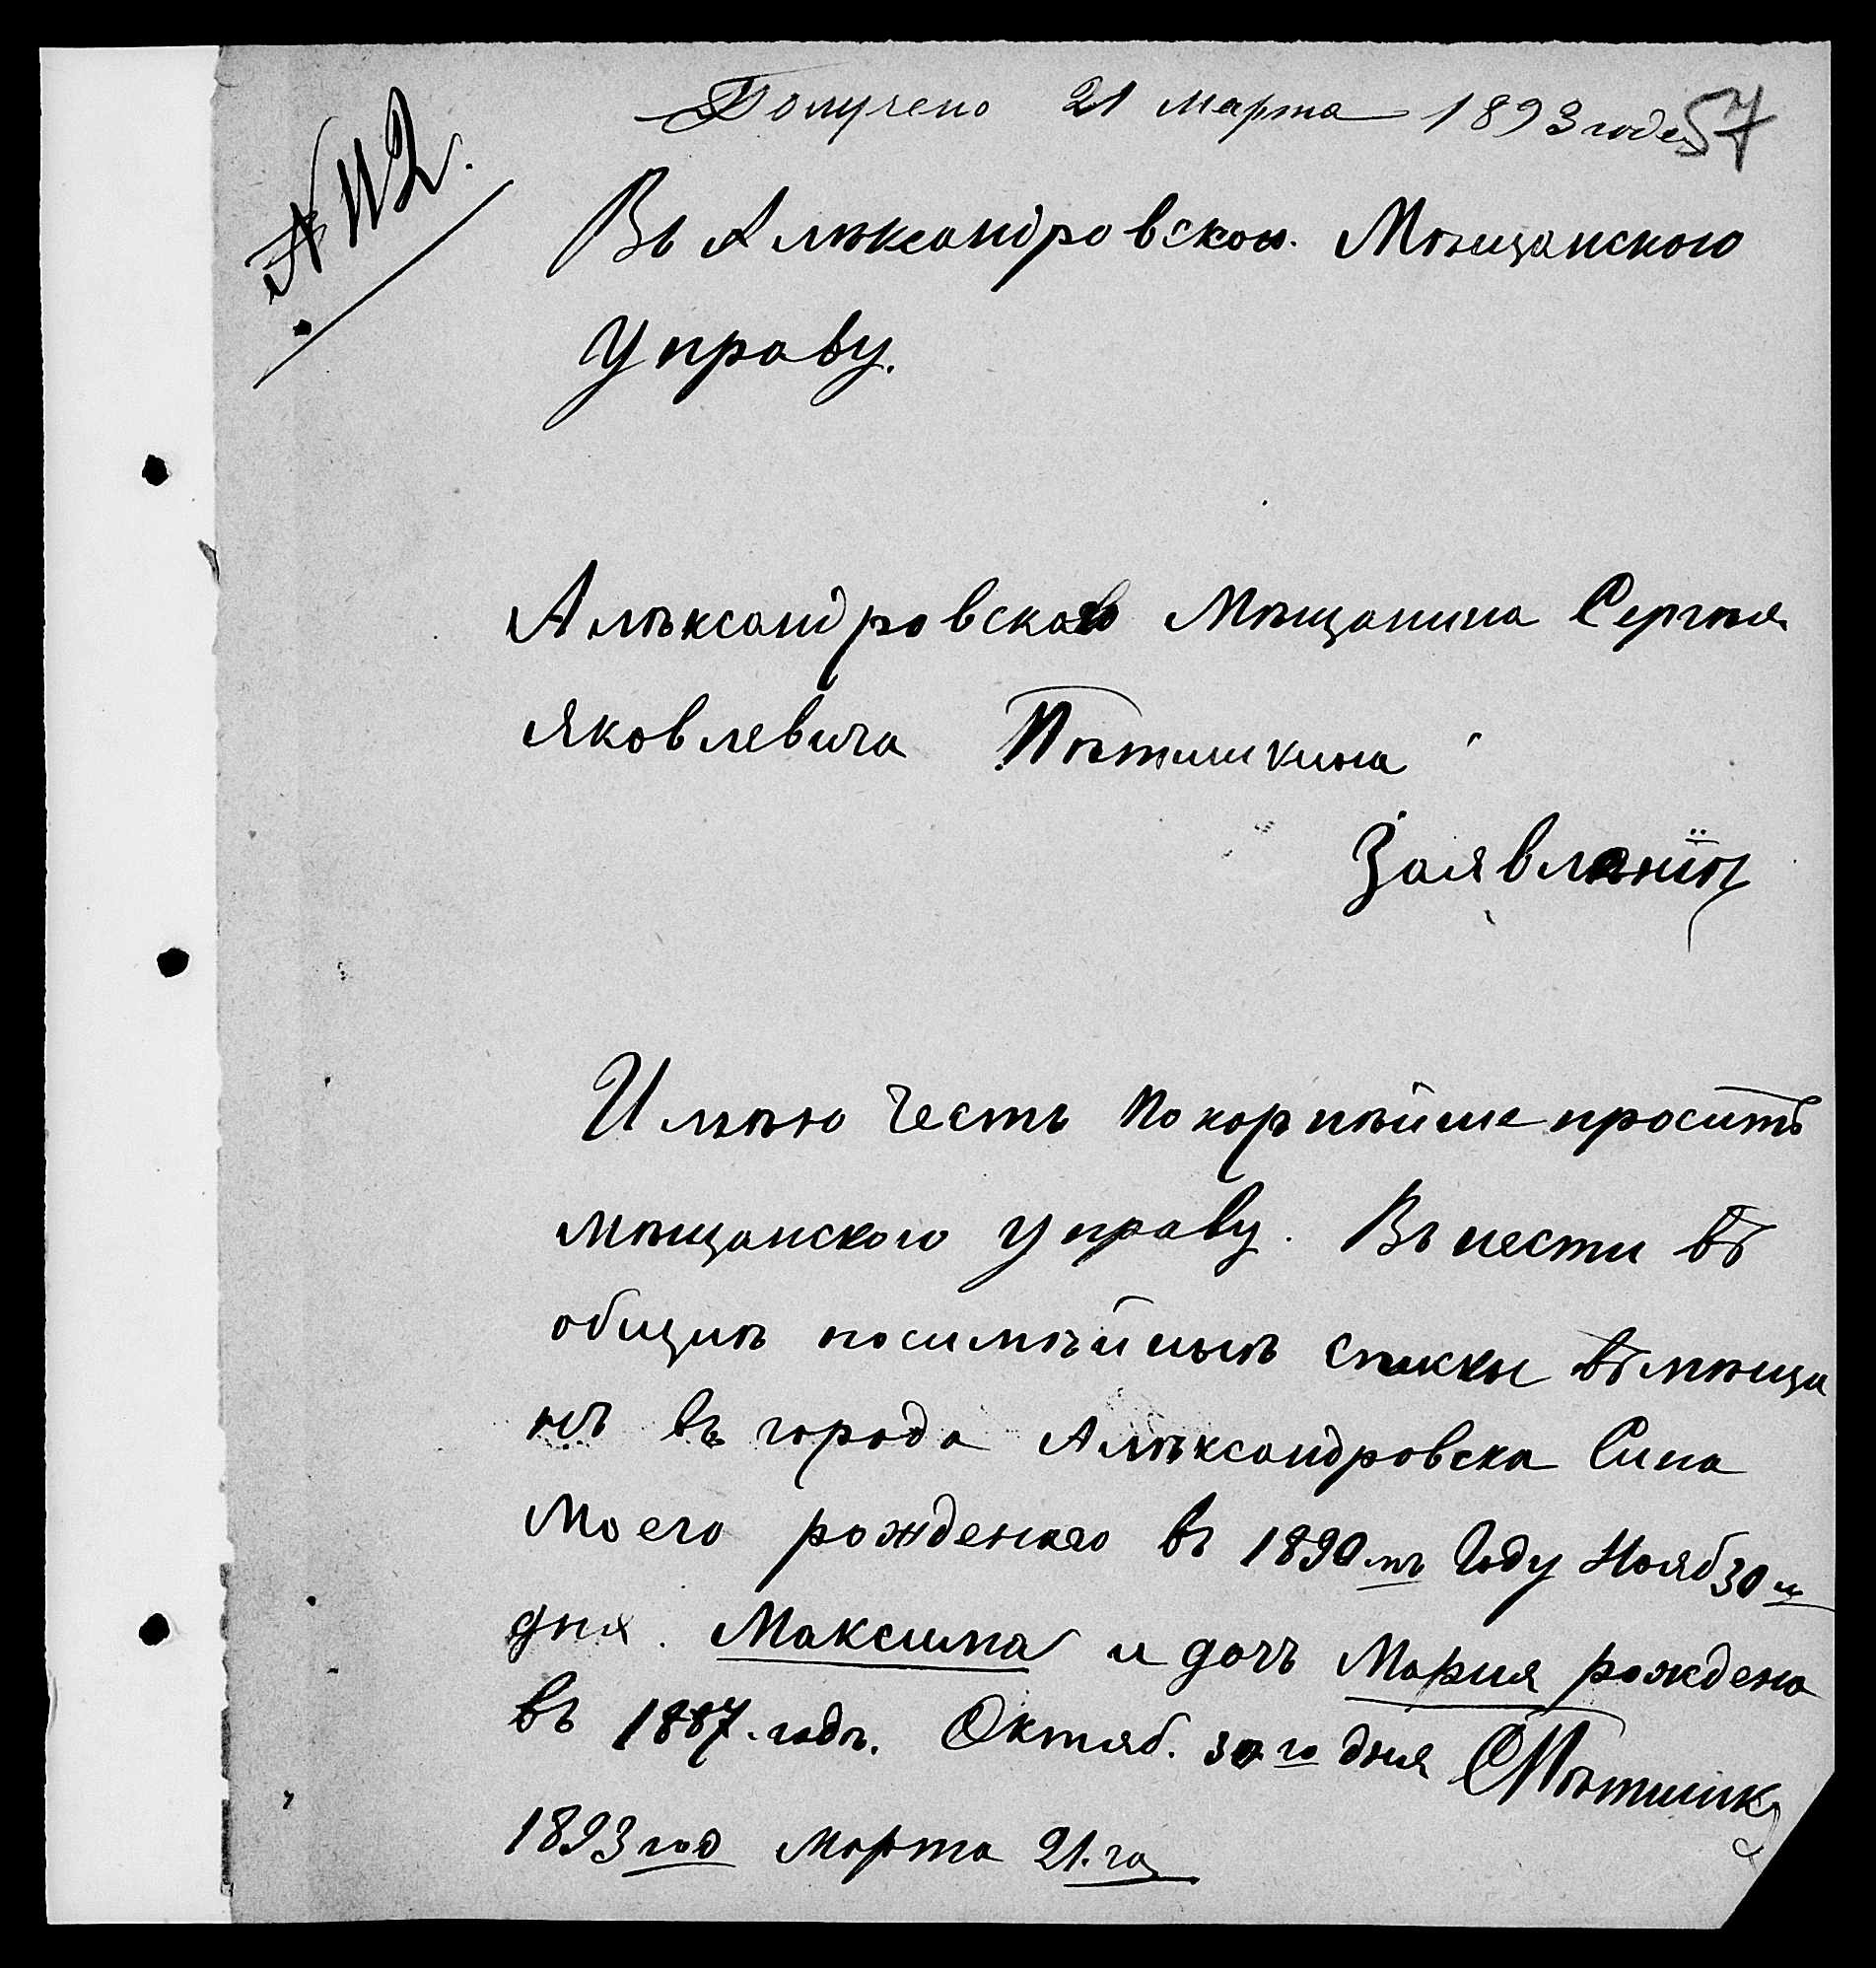 Получено 21 марта 1893 года
57
№ 112.
Въ Алѣксандровскою Мѣщанскою
Управу.
Алѣксандровскаго Мѣщанина Сергѣя
Яковлевича Пѣтишкина
Заявлэніѣ
Имѣю Честь Покорнѣйше проситъ
мѣщанскою Управу. Вънести въ
общиѣ посимѣйныѣ списки въ мѣща
нъ въ города Алѣксандровска Сина
Моего рожденаго въ 1890 мъ Году Нояб 30 го
дня. Максима и дочъ Мария рождена
въ 1887. годъ. Октяб. 30 го дня СПѣтишк
1893 год Марта 21. го